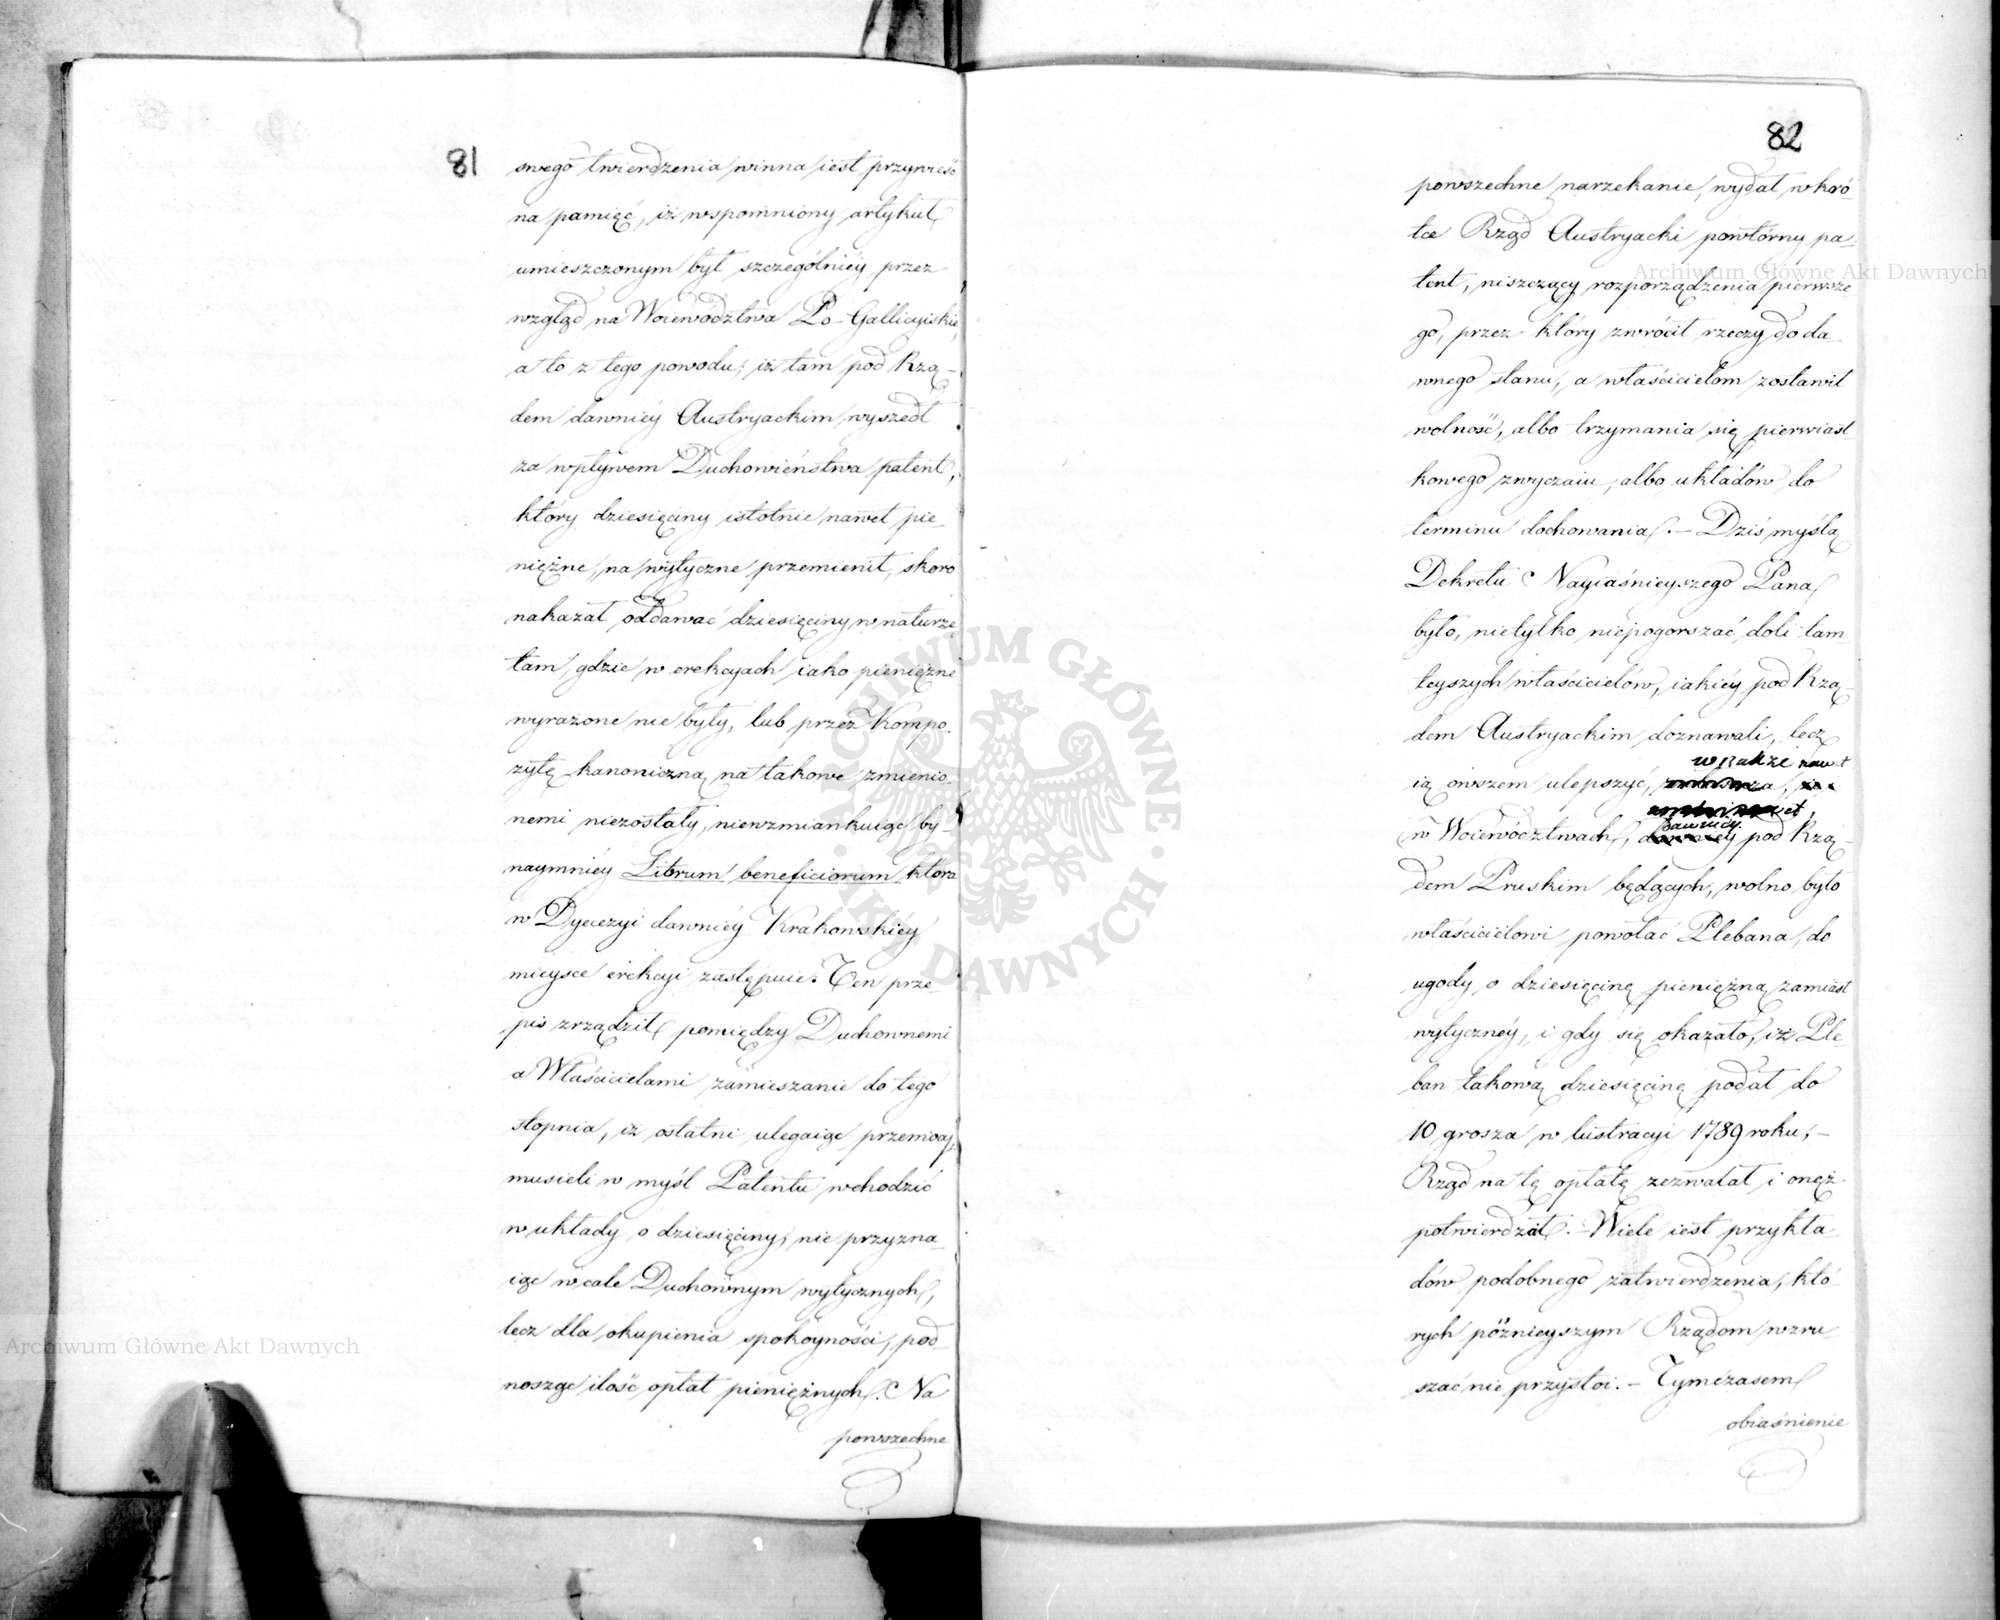 81
swego twierdzenia winna iest przywieść
na pamięć, iż wspomniony artykuł
umieszczonym był szczególniéy przez
wzgląd na Woiewodztwa Po-Gallicyiskie,
a to z tego powodu; iż tam pod Rzą-
dem dawniéy Austryackim wyszedł
za wpływem Duchowieństwa patent,
który dziesięciny istotnie nawet pie-
niężne, na wytyczne przemienił, skoro
nakazał oddawać dziesięciny w naturze
tam, gdzie w erekcyach iako pieniężne
wyrażone nie były, lub przez Kompo-
zytę kanoniczną na takowe zmienio-
nemi niezostały, niewzmiankuiąc by-
naymniéy Librum beneficiorum która
w Dyecezyi dawniéy Krakowskiéy
mieysce erekcyi zastępuie. Ten prze-
pis zrządził pomiędzy Duchownemi
a Właścicielami zamieszanie do tego
stopnia, iż ostatni ulegaiąc przemocy,
musieli w myśl Patentu wchodzić
w układy o dziesięciny, nie przyzna-
iąc wcale Duchownym wytycznych,
lecz dla okupienia spokoyności, pod-
nosząc ilość opłat pieniężnych. Na
powszechne
82
powszechne narzekanie, wydał wkró-
tce Rząd Austryacki powtórny pa-
tent, niszczący rozporządzenia pierwsze-
go, przez który zwrócił rzeczy do da-
wnego stanu, a właścicielom zostawił
wolność, albo trzymania się pierwiast-
kowego zwyczaiu, albo układów do
terminu dochowania. - Dziś myślą
Dekretu Nayiaśnieyszego Pana
było, nietylko niepogorszać doli tam-
teyszych właścicielów, iakiéy pod Rzą-
dem Austryackim doznawali, lecz
wszakże nawet
ią owszem ulepszyć,
dawniéy
w Woiewództwach, pod Rzą-
dem Pruskim będących, wolno było
właścicielowi powołać Plebana, do
ugody o dziesięcinę pieniężną zamiast
wytycznéy, i gdy się okazało, iż Ple-
ban takową dziesięcinę podał do
10 grosza w lustracyi 1789 roku, -
Rząd na tę opłatę zezwalał i onęż
potwierdzał. - Wiele iest przykła-
dów podobnego zatwierdzenia, któ-
rych póżnieyszym Rządom wzru-
szać nie przystoi. - Tymczasem
obiaśnienie
Archiwum Główne Akt Dawnych
Archiwum Główne Akt Dawnych
ARCHIWUM GŁÓWNE AKT DAWNYCH